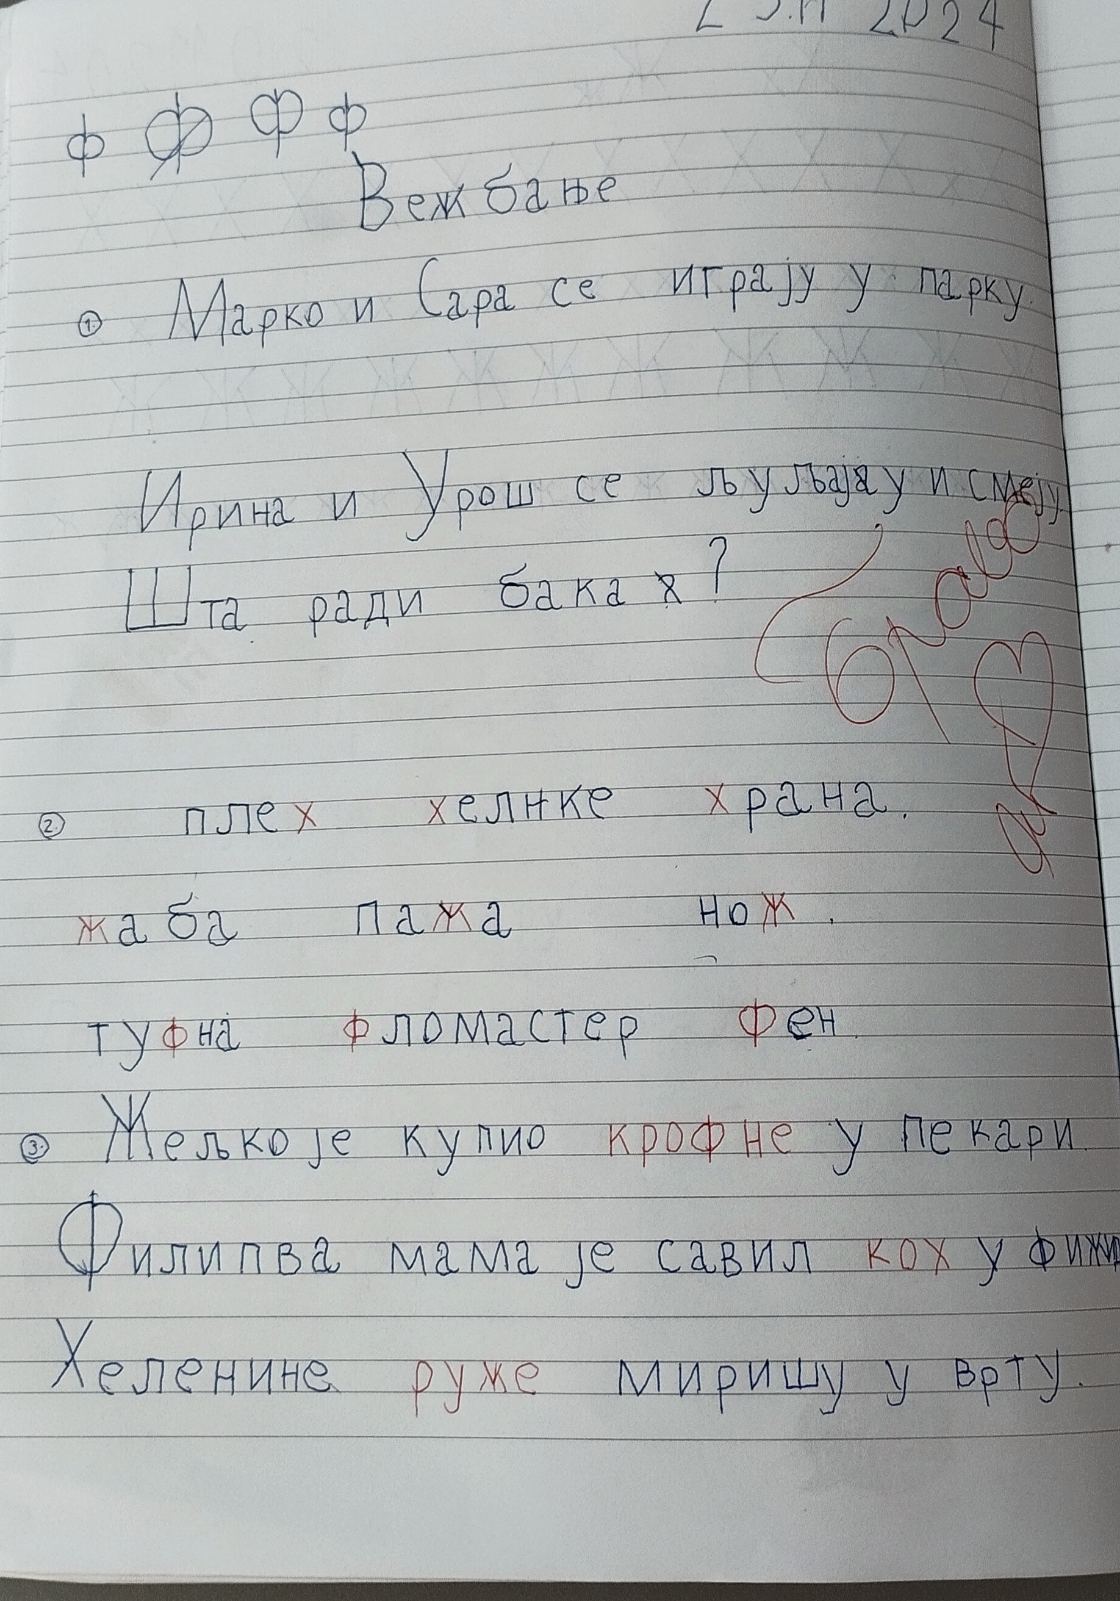 2024
ф Ф Ф ф
Вежбање
1. Марко и Сара се играју у парку.
Ирина и Урош се љуљају и смеју
Шта ради бака х?
2. плех хелнке храна.
жаба пажа нож.
туфна фломастер фен
3. Жељко је купио крофне у пекари.
Филипва мама је савил кох у
Хеленине руже миришу у врту.